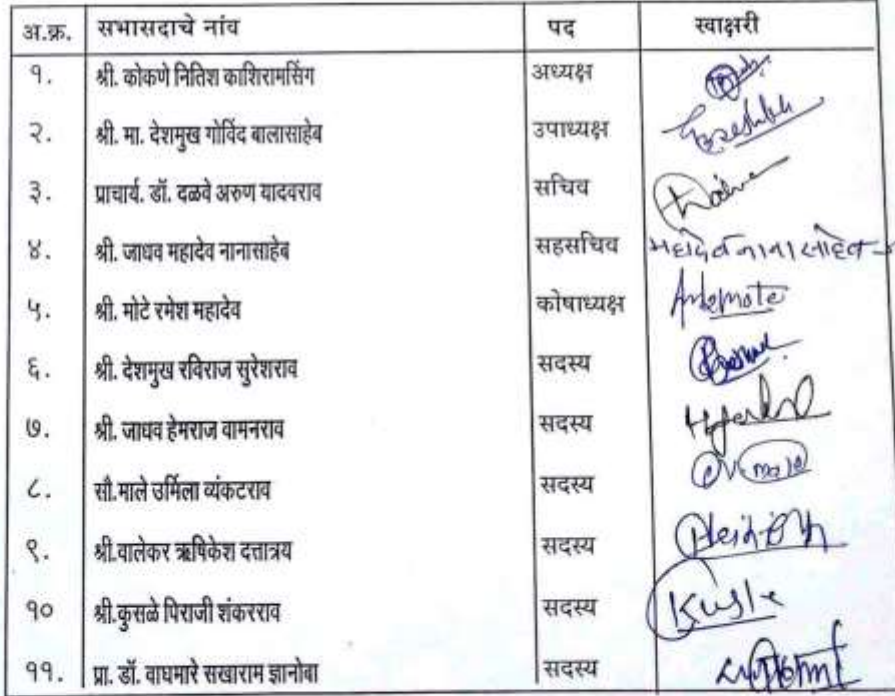 अ.क्र. सभासदाचे नांव पद स्वाक्षरी
१. श्री. कोकणे नितिश काशिरामसिंग अध्यक्ष
२. श्री. मा. देशमुख गोविंद बालासाहेब उपाध्यक्ष
३. प्राचार्य. डॉ. दळवे अरुण यादवराव सचिव
४. श्री. जाधव महादेव नानासाहेब सहसचिव महादेव नानासाहेब
५. श्री. मोटे रमेश महादेव कोषाध्यक्ष
६. श्री. देशमुख रविराज सुरेशराव सदस्य
७. श्री. जाधव हेमराज वामनराव सदस्य
८. सौ.माले उर्मिला व्यंकटराव सदस्य
९. श्री.वालेकर ऋषिकेश दत्तात्रय सदस्य
१० श्री.कुसळे पिराजी शंकरराव सदस्य
११. प्रा. डॉ. वाघमारे सखाराम ज्ञानोबा सदस्य